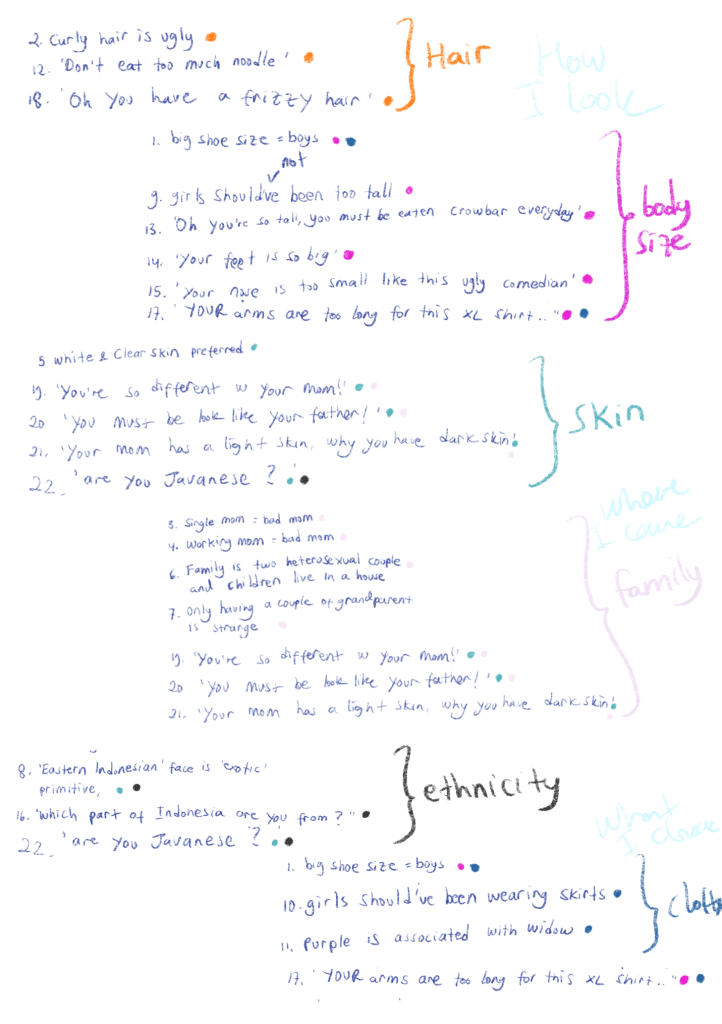 2. Curly hair is ugly
12. 'Don't eat too much noodle'
Hair
18. 'Oh You have a frizzy hair'
How
I look
1. big shoe size = boys
not
9. girls should've been too tall
13. 'Oh you're so tall, you must be eaten crowbar everyday'
14. 'Your feet is so big'
15. 'Your nose is too small like this ugly comedian'
17. 'YOUR arms are too long for this XL shirt.."
body
size
5 White & Clear skin preferred
19. 'You're so different w your mom!'
20 'You must be look like your father!'
21. 'Your mom has a light skin, why you have dark skin!
22. 'are you Javanese?
Skin
3. Single mom = bad mom
4. Working mom = bad mom
6. Family is two heterosexual couple
and children live in a house
7. Only having a couple of grandparent
is strange
19. 'You're so different w your mom!'
20 'You must be look like your father!'
21. 'Your mom has a light skin, why you have dark skin!
Where
I came
family
8. 'Eastern Indonesian' face is 'exotic'
primitive,
16. 'Which part of Indonesia are you from?"
22. 'are you Javanese?
ethnicity
What
I
1. big shoe size = boys
10. girls should've been wearing skirts
11. Purple is associated with widow
17. 'YOUR arms are too long for this XL shirt.."